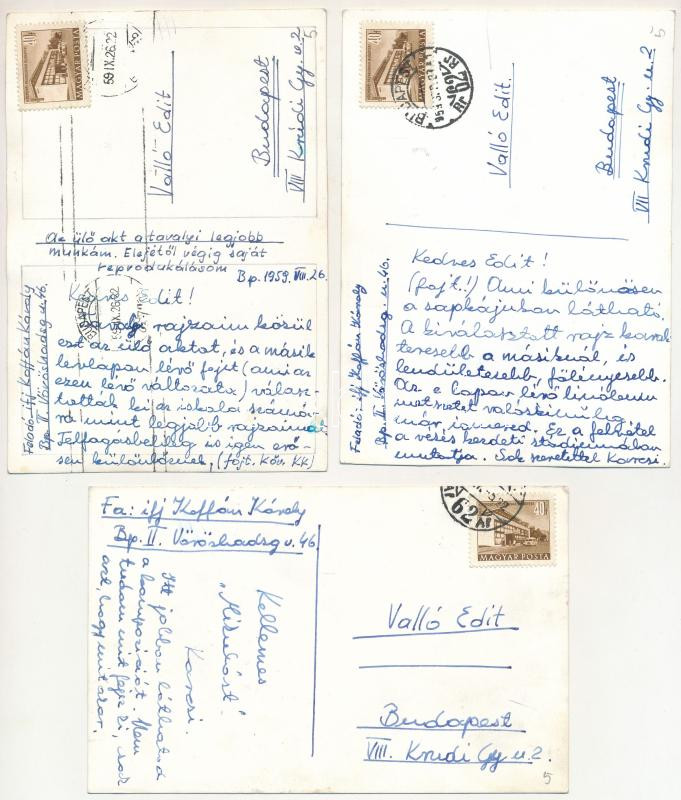 40f
MAGYAR POSTA
59 IX. 26. 22
5
Valló Edit
Budapest
VIII Krúdi Gy. u. 2
Az ülő akt a tavalyi legjobb
munkám. Elejétől végig saját
reprodukálásom
Bp. 1959. VIII. 26.
Feladó: ifj Koffán Károly
Bp. II. Vöröshadsg u. 46.
Kedves Edit!
rajzaim közül
ezt az ülő aktot, és a másik
levlapon lévő fejet (ami az
ezen lévő változata) válasz-
tották ki az iskola számá-
ra mint legjobb rajzaimat.
Felfogásbelileg is igen erő-
sen különböznek, (fojt. köv. KK)
40f
MAGYAR POSTA
BUDAPEST
5
Valló Edit.
Budapest
VIII Krudi Gy. u. 2
Feladó: ifj Koffán Károly
Bp. II. Vöröshadseg u. 46.
Kedves Edit!
(fojt.!) Ami különösen
a sapkájukon látható.
A kiválasztott rajz karak
teresebb a másiknál, és
lendületesebb, fölényesebb.
Az e lapon lévő linóleum
metszetet valószinüleg
már ismered. Ez a felvétel
a vésés kezdeti stádiumában
mutatja. Sok szeretettel Karcsi.
Fa: ifj Koffán Károly
Bp. II. Vöröshadsg u. 46.
Kellemes
„Mikulást”
Karcsi.
Itt jobban láthatod
a kompoziciót. Nem
tudom mit fejez ki, csak
azt, hogy mit akar.
40f
MAGYAR POSTA
Valló Edit
Budapest
VIII. Krudi Gy. u. 2.
5